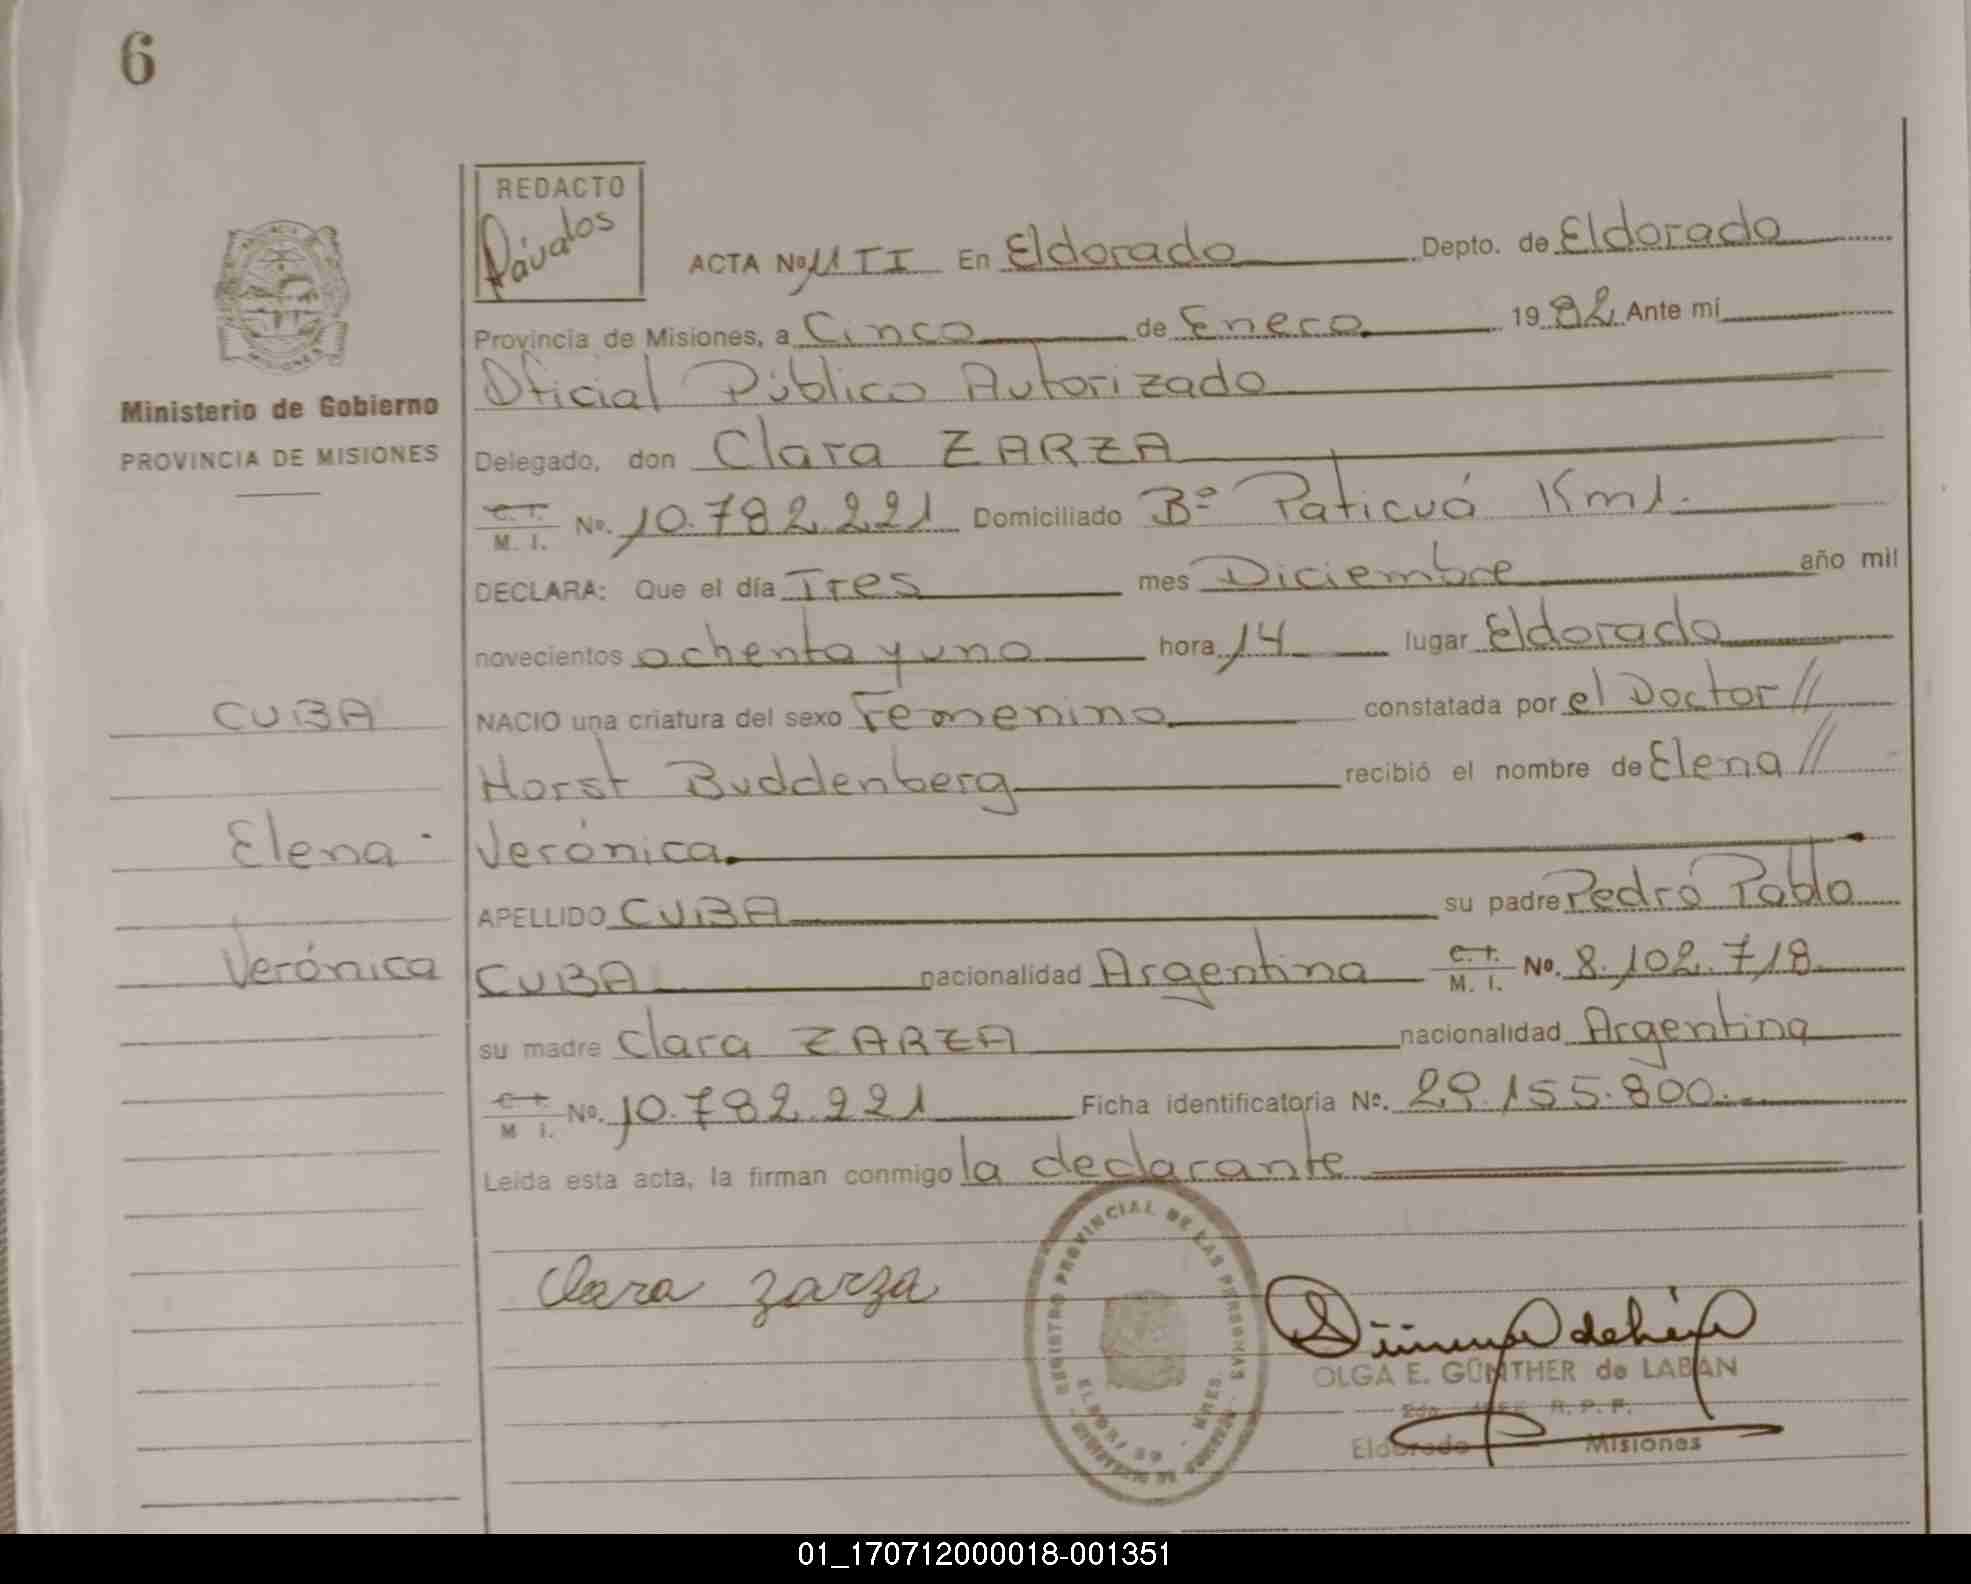 6
REDACTO
Dávalos
ACTA Nº 11 TI En Eldorado Depto. de Eldorado
Provincia de Misiones, a Cinco de Enero 1982 Ante mí
Oficial Público Autorizado
Ministerio de Gobierno
PROVINCIA DE MISIONES
Delegado, don Clara ZARZA
C. I. M. I. No. 10.782.221 Domiciliado Bº Paticuá Km 1.
DECLARA: Que el día Tres mes Diciembre año mil
novecientos ochenta y uno hora 14 lugar Eldorado
CUBA
NACIO una criatura del sexo Femenino constatada por el Doctor //
Horst Buddenberg recibió el nombre de Elena //
Elena
Verónica.
APELLIDO CUBA su padre Pedro Pablo
Verónica
CUBA nacionalidad Argentina C. I. M. I. No. 8.102.718
su madre Clara ZARZA nacionalidad Argentina
C. I. M I. No. 10.782.221 Ficha identificatoria Nº. 29.155.800.
Leída esta acta, la firman conmigo la declarante
Clara Zarza
REGISTRO PROVINCIAL DE LAS PERSONAS
ELDORADO MNES.
OLGA E. GÜNTHER de LABAN
R. P. P.
Eldorado Misiones
01_170712000018-001351